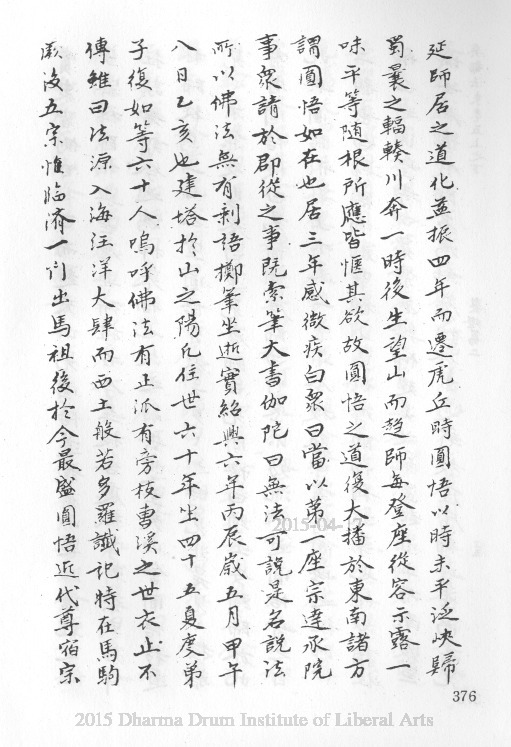 延師居之道化益振四年而遷虎丘時圓悟以時未平泛峽歸
蜀曩之輻輳川奔一時後生望山而趍師每登座從容示露一
味平等随根所應皆愜其欲故圓悟之道復大播於東南諸方
謂圓悟如在也居三年感微疾白衆曰當以第一座宗達承院
事衆請於郡從之事既索筆大書伽陀曰無法可說是名說法
所以佛法無有剩語擲筆坐逝實紹興六年丙辰歲五月甲午
八日乙亥也建塔扵山之陽凢住世六十年坐四十五夏度弟
子復如等六十人嗚呼佛法有正派有旁枝曹溪之世衣止不
傳雖曰法源入海汪洋大肆而西土般若多羅讖記特在馬駒
厥後五宗惟臨濟一宗出馬祖後扵今最盛圓悟近代尊宿宗
376
2015-04-17
2015 Dharma Drum Institute of Liberal Arts